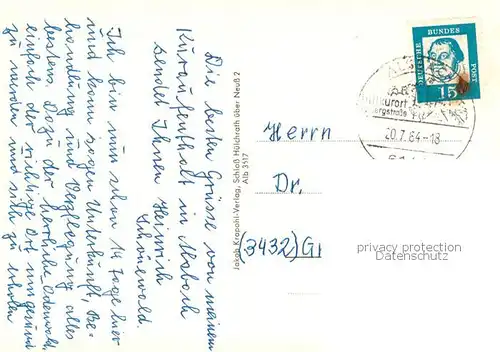 Die besten Grüsse von meinem
Kuraufenthalt in Alsbach
sendet Ihnen Heinrich
Schönewald.
Ich bin nun schon 14 Tage hier
und kann sagen Unterkunft, Be-
handlung und Verpflegung alles
bestens. Dazu der herrliche Odenwald,
einfach der richtige Ort um gesund
zu werden und sich zu erholen
Jakob Krapohl-Verlag, Schloß Hülchrath über Neuß 2
Alb 3517
DEUTSCHE BUNDESPOST
15
20.7.64-18
Herrn
Dr.
(3432) G
privacy protection
Datenschutz